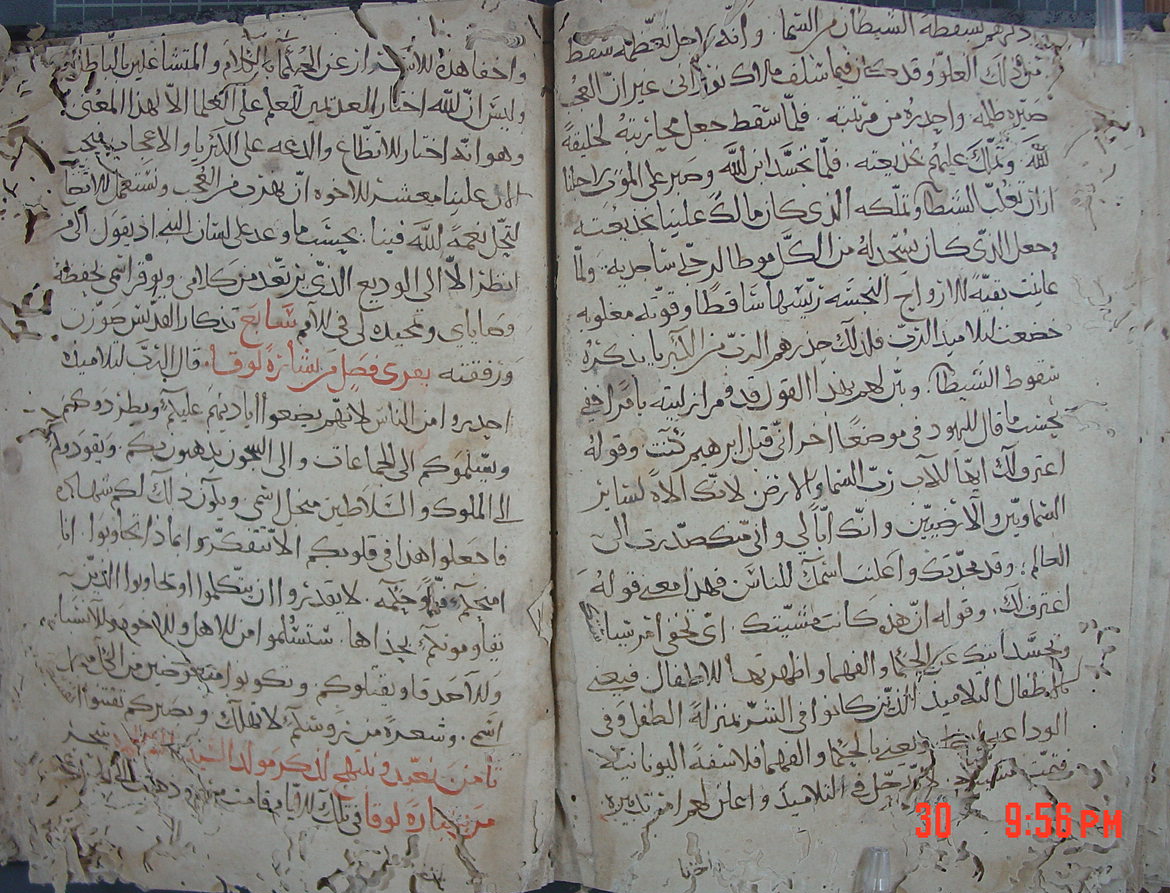 ذكرهم سقطة الشيطان من السما. وانه لاجل تعظمه سقط
من ذلك العلو وقد كان فيما سلف ملاك نورانى غير ان العجب
صيره ظلمه. واحدره من مرتبته. فلما سقط جعل محاربته لخليقة
الله وتملك عليهم بخديعته. فلما تجسد ابن الله وصبر على الموت من اجلنا
اراد ان تغلب الشيطان وتملكه الذى كان مالكا علينا بخديعته
وجعل الذى كان يسجد له من الكل موطا لارجل ساجديه. ولما
عاينت بقية الارواح النجسه رئيسها ساقطا وقوته مغلوبه
خضعت لتلاميذ الرب فلذلك حذرهم الرب من الكبريا بذكره
سقوط الشيطان. وبين لهم بهذا القول قدومه ازليته
بحسب ما قال لليهود فى موضعا اخر انى قبل ابرهيم كنت وقوله
اعترف لك ايها الاب رب السما والارض لانك الاه لساير
السماويين والارضيين وانك ابا لى وانى منك صدرت الى
العالم. وقد مجدتك واعلنت اسمك للناس فهذا معنى قوله
اعترف لك. وقوله ان هذه كانت مشيتك اى تخفى امر شيا
وتجسد ابنك عن الحكما والفهما واظهرتها للاطفال فيعنى
بالاطفال التلاميذ الذين كانوا فى الشر بمنزلة الطفل وفى
الوداعه ويعنى بالحكما والفهما فلاسفة اليونانيه
حل فى التلاميذ واعلن لهم امر تدبيره
واخفا هذه الاسرار عن الحكما بالكلام والمتشاغلين بالباطل
وليس ان الله اختار العدمين العلم على العلما الا لهذا المعنى
وهو انه اختار الاتضاع والدعه على الكبريا والاعجاب فيجب
الان علينا معشر الاخوه ان نهرب من العجب ونستعمل الاتضاع
لتحل نعمة الله فينا. بحسب ما وعد على لسان النبى اذ يقول الى من
انظر الا الى الوديع الذى يرتعد من كلامى ويوقر اسمى لحفظة
وصاياى وتمجيده لى فى الامم سابع تذكار القديس حوزن
ورفقته يقرى فصل من بشارة لوقا. قال الرب لتلاميذه
احذروا من الناس لانهم يضعوا اياديهم عليكم ويطردوكم
ويسلموكم الى الجماعات والى السجون يذهبون بكم. ويقودوكم
الى الملوك والسلاطين من اجل اسمى ويكون ذلك لكم شهاده
فاجعلوا هذا فى قلوبكم الا تتفكروا بماذا تجاوبوا. انا
امنحكم فما وحكمه. لا يقدروا ان يتكلموا او يجاوبوا الذين
يقاومونكم بحذاها. ستسلموا من الاهل والاخوه والانسبا
والاصدقا ويقتلوكم. وتكونوا مبغوضين من الكل من اجل
اسمى. وشعره من روسكم لا تهلك. وبصبركم تقتنوا انفسكم
ثامن نعيد ونبتهج لذكر مولد السيد
من بشارة لوقا فى تلك الايام قامت مريم وذهبت
30 9:56 PM